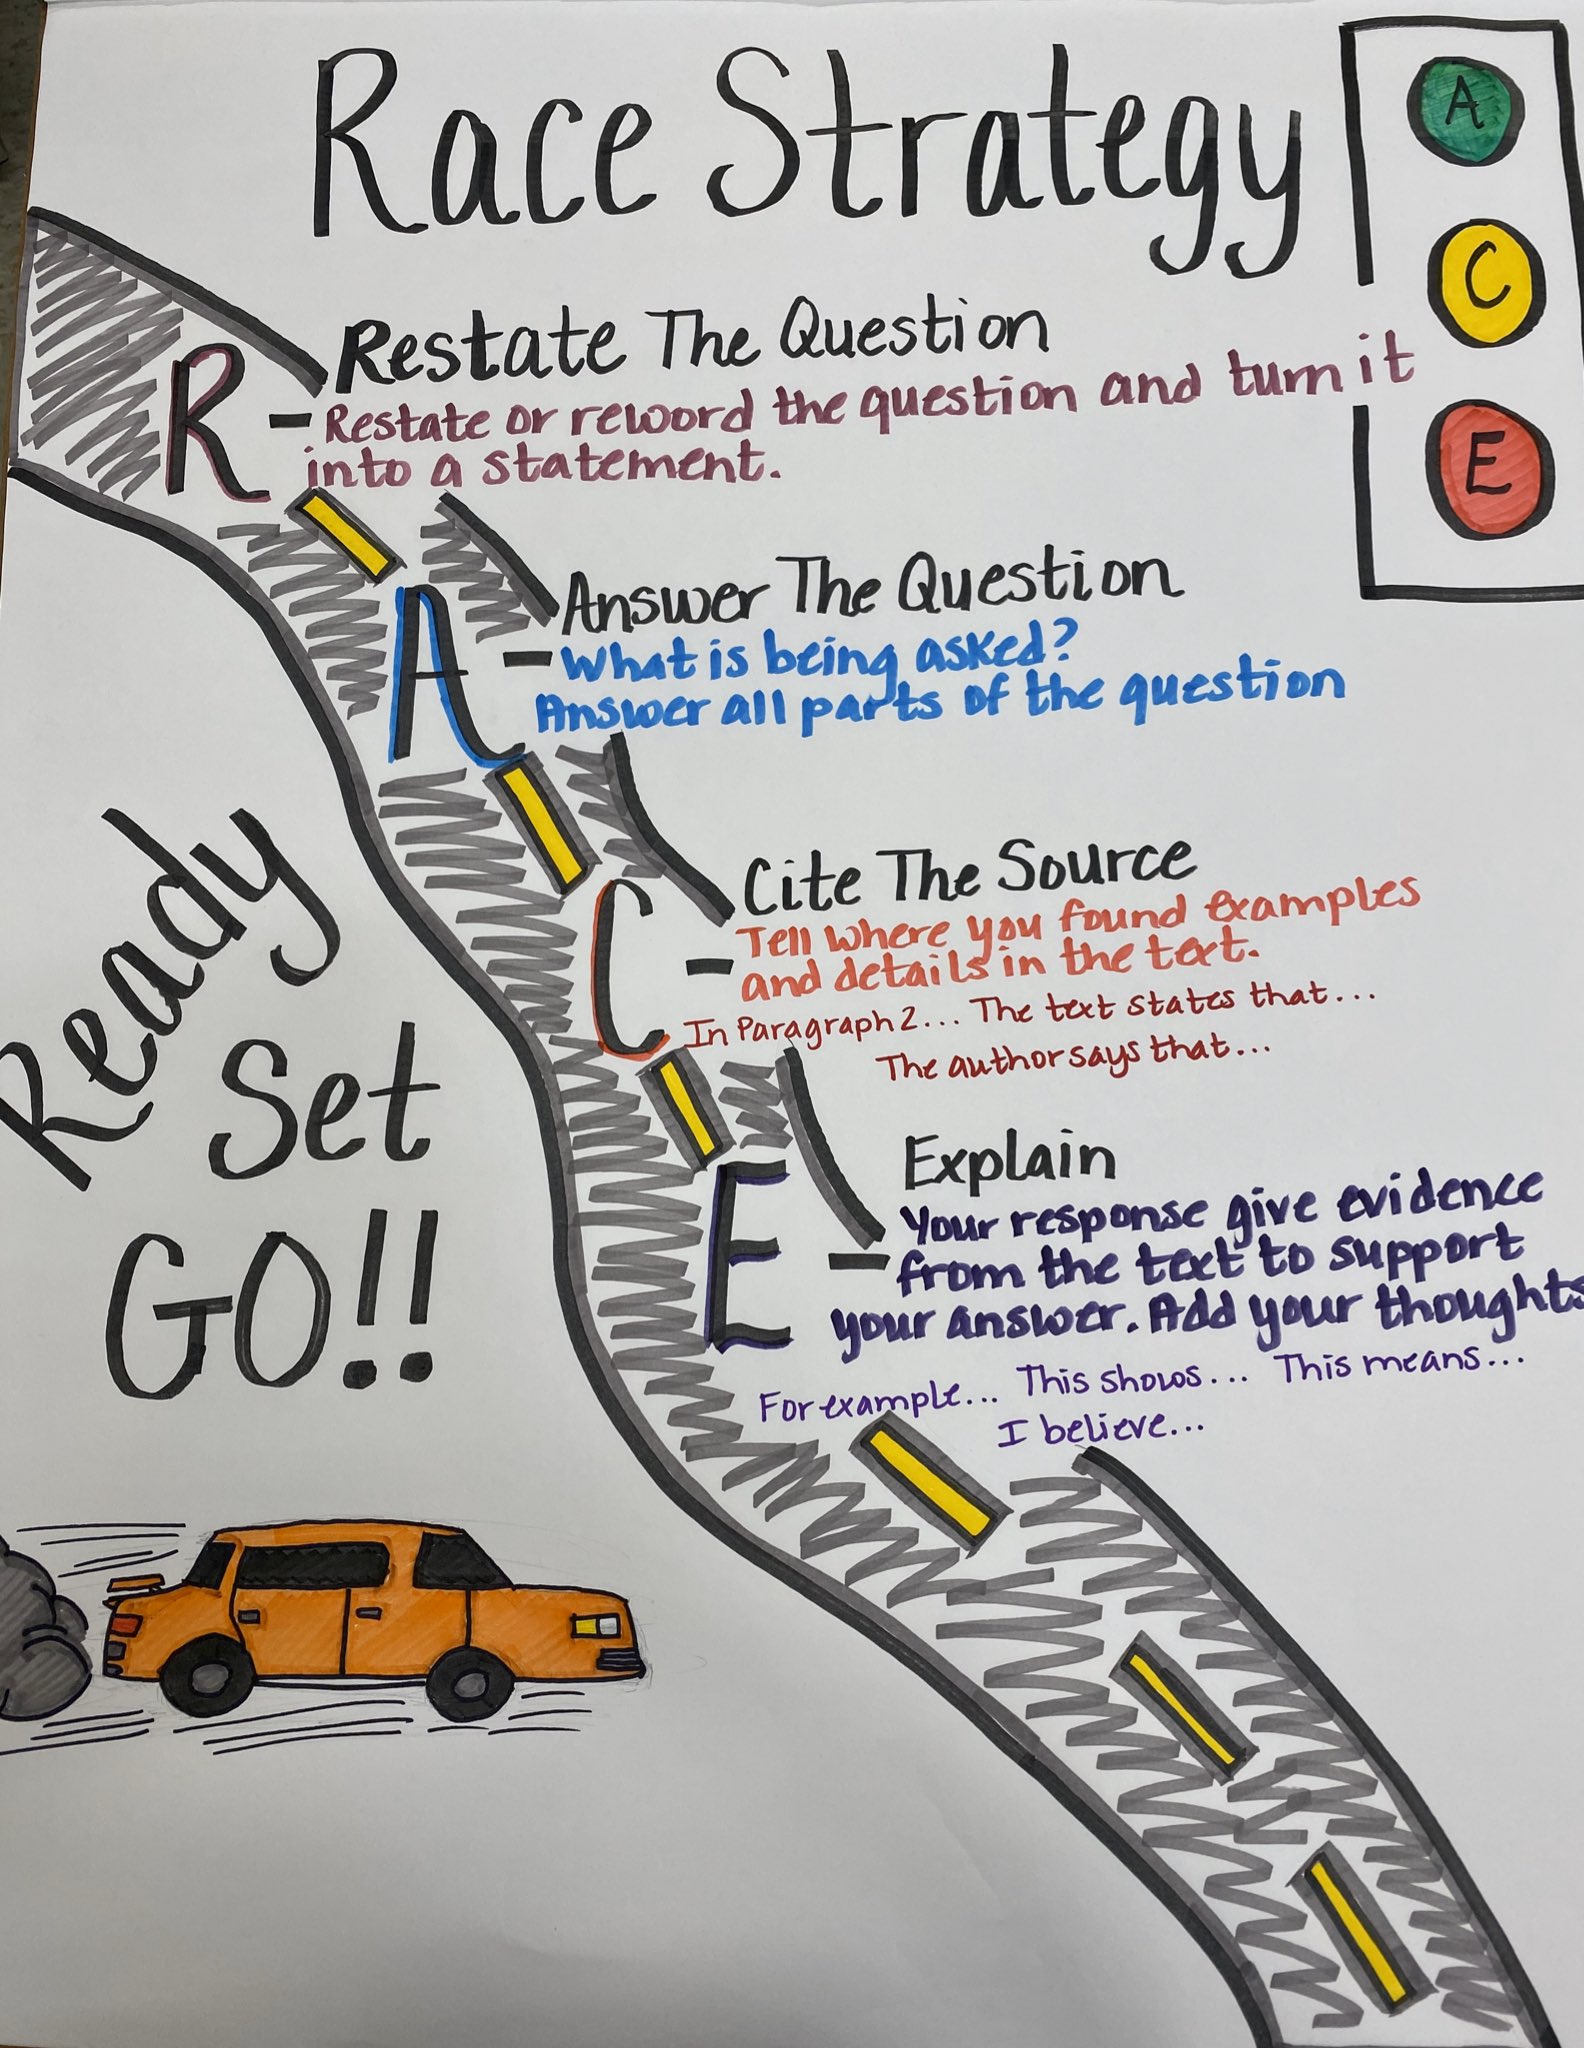 Race Strategy
A
C
E
R
Restate The Question
- Restate or reword the question and turn it
into a statement.
A
Answer The Question
- What is being asked?
Answer all parts of the question
C
Cite The Source
- Tell where you found examples
and details in the text.
In Paragraph 2... The text states that...
The author says that...
E
Explain
- Your response give evidence
from the text to support
your answer. Add your thoughts
For example... This shows... This means...
I believe...
Ready
Set
GO!!